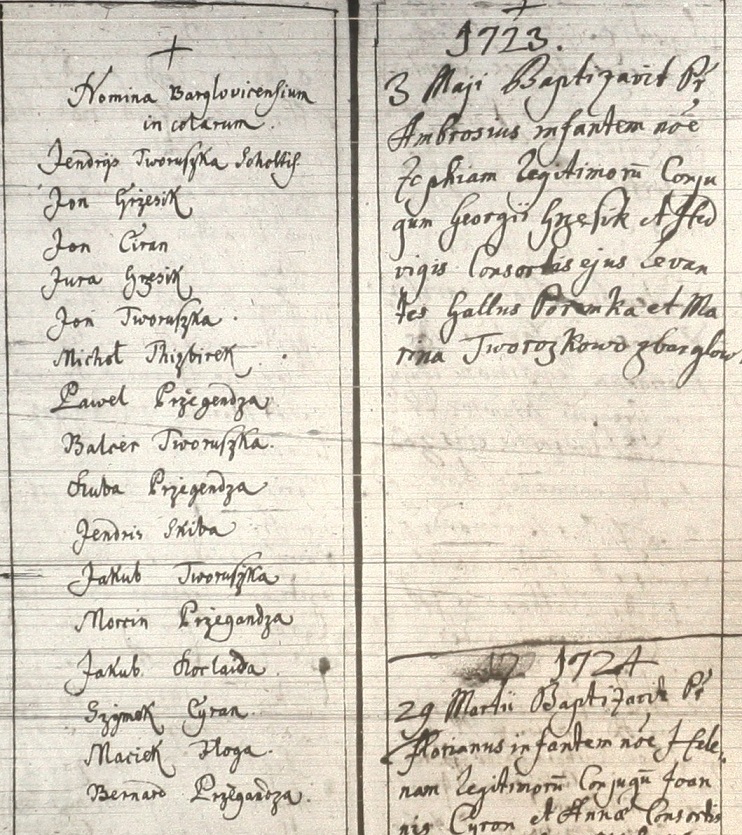 Nomina Barglovicensium
incolarum.
Jendrys Tworuszka Scholtis
Jon Grzesik
Jon Ciran
Jura Grzesik
Jon Tworuszka
Michoł
Pawel Przegendza
Balcer Tworuszka.
Kuba Przegendza
Jendris Skiba
Jakub Tworuszka
Morcin Przegandza
Jakub
Szymek Cyran.
Maciek
Bernard Przegandza.
1723.
3 Maji Baptizavit Pr
Ambrosius infantem noe
Zophiam legitimorū Conju
gum Georgii Grzesik et Hed
vigis Consortis ejus Levan
tes Gallus Poremka et Ma
rina Tworozkowo zbarglow
1724
29 Martii Baptizavit Pr
Florianus infantem noe Hele
nam legitimorū Conjugū Joan
nis Cyron et Annae Consortis